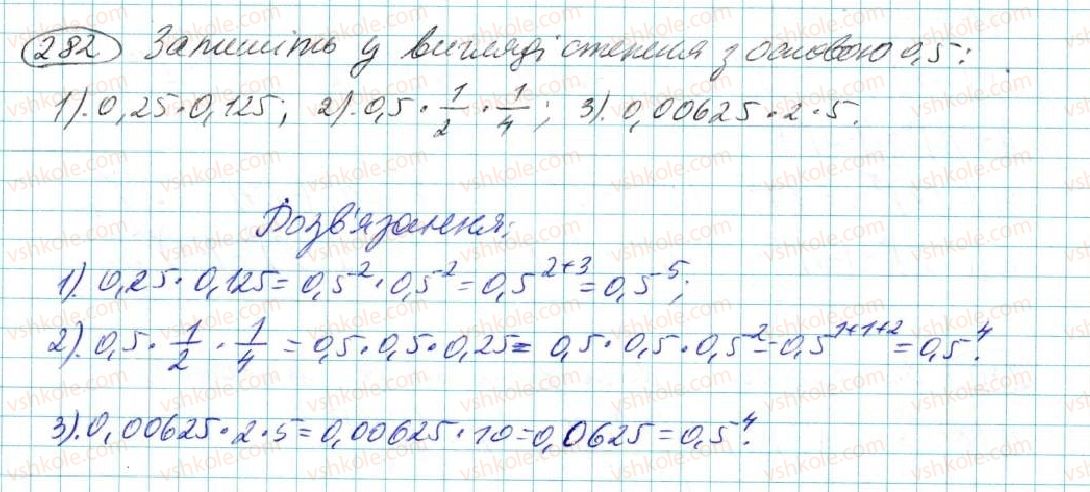 282 Запишіть у вигляді степеня з основою 0,5:
1). 0,25·0,125; 2). 0,5·1/2·1/4; 3). 0,00625·2·5.
Розв'язання:
1). 0,25·0,125=0,5²·0,5²=0,5²⁺³=0,5⁵;
2). 0,5·1/2·1/4=0,5·0,5·0,25=0,5·0,5·0,5²=0,5¹⁺¹⁺²=0,5⁴.
3). 0,00625·2·5=0,00625·10=0,0625=0,5⁴.